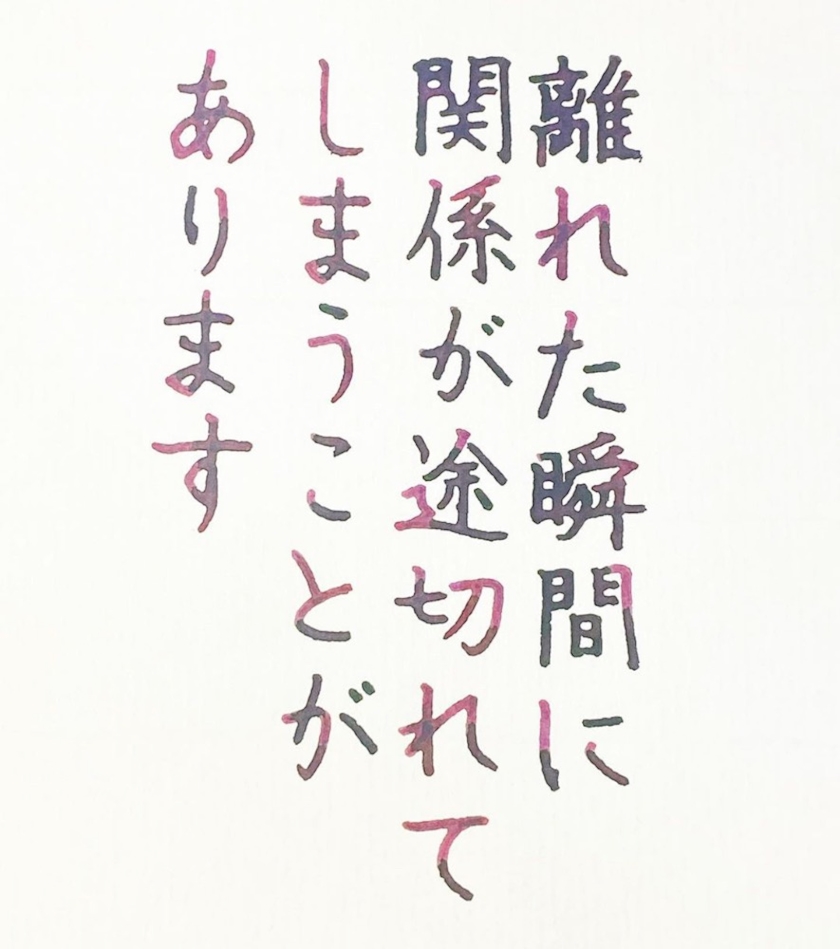 離れた瞬間に
関係が途切れて
しまうことが
あります